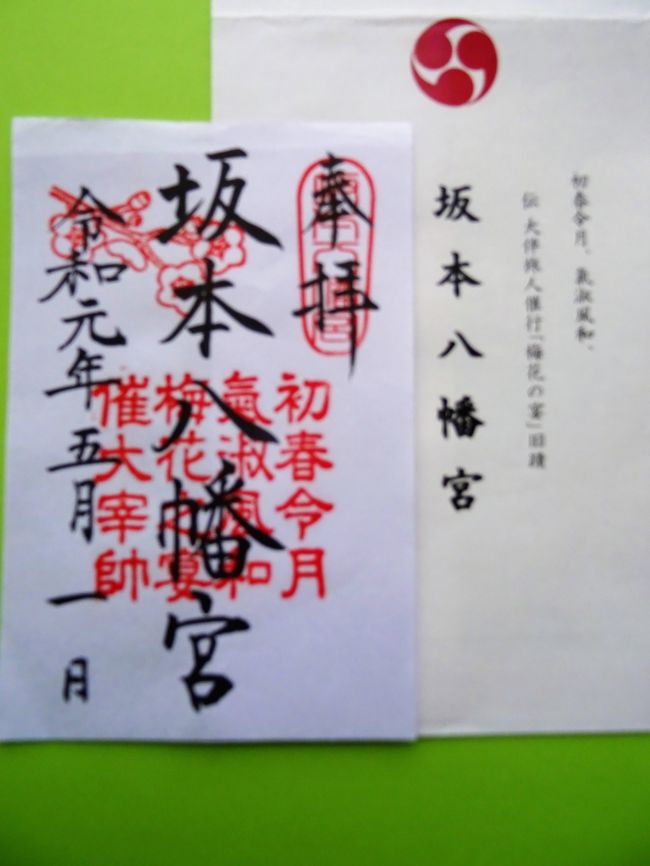 初春令月、氣淑風和、
伝 大伴旅人催行「梅花の宴」旧蹟
坂本八幡宮
奉拝
坂本八幡宮
令和元年五月一日
初春令月
氣淑風和
梅花之宴
催大宰帥